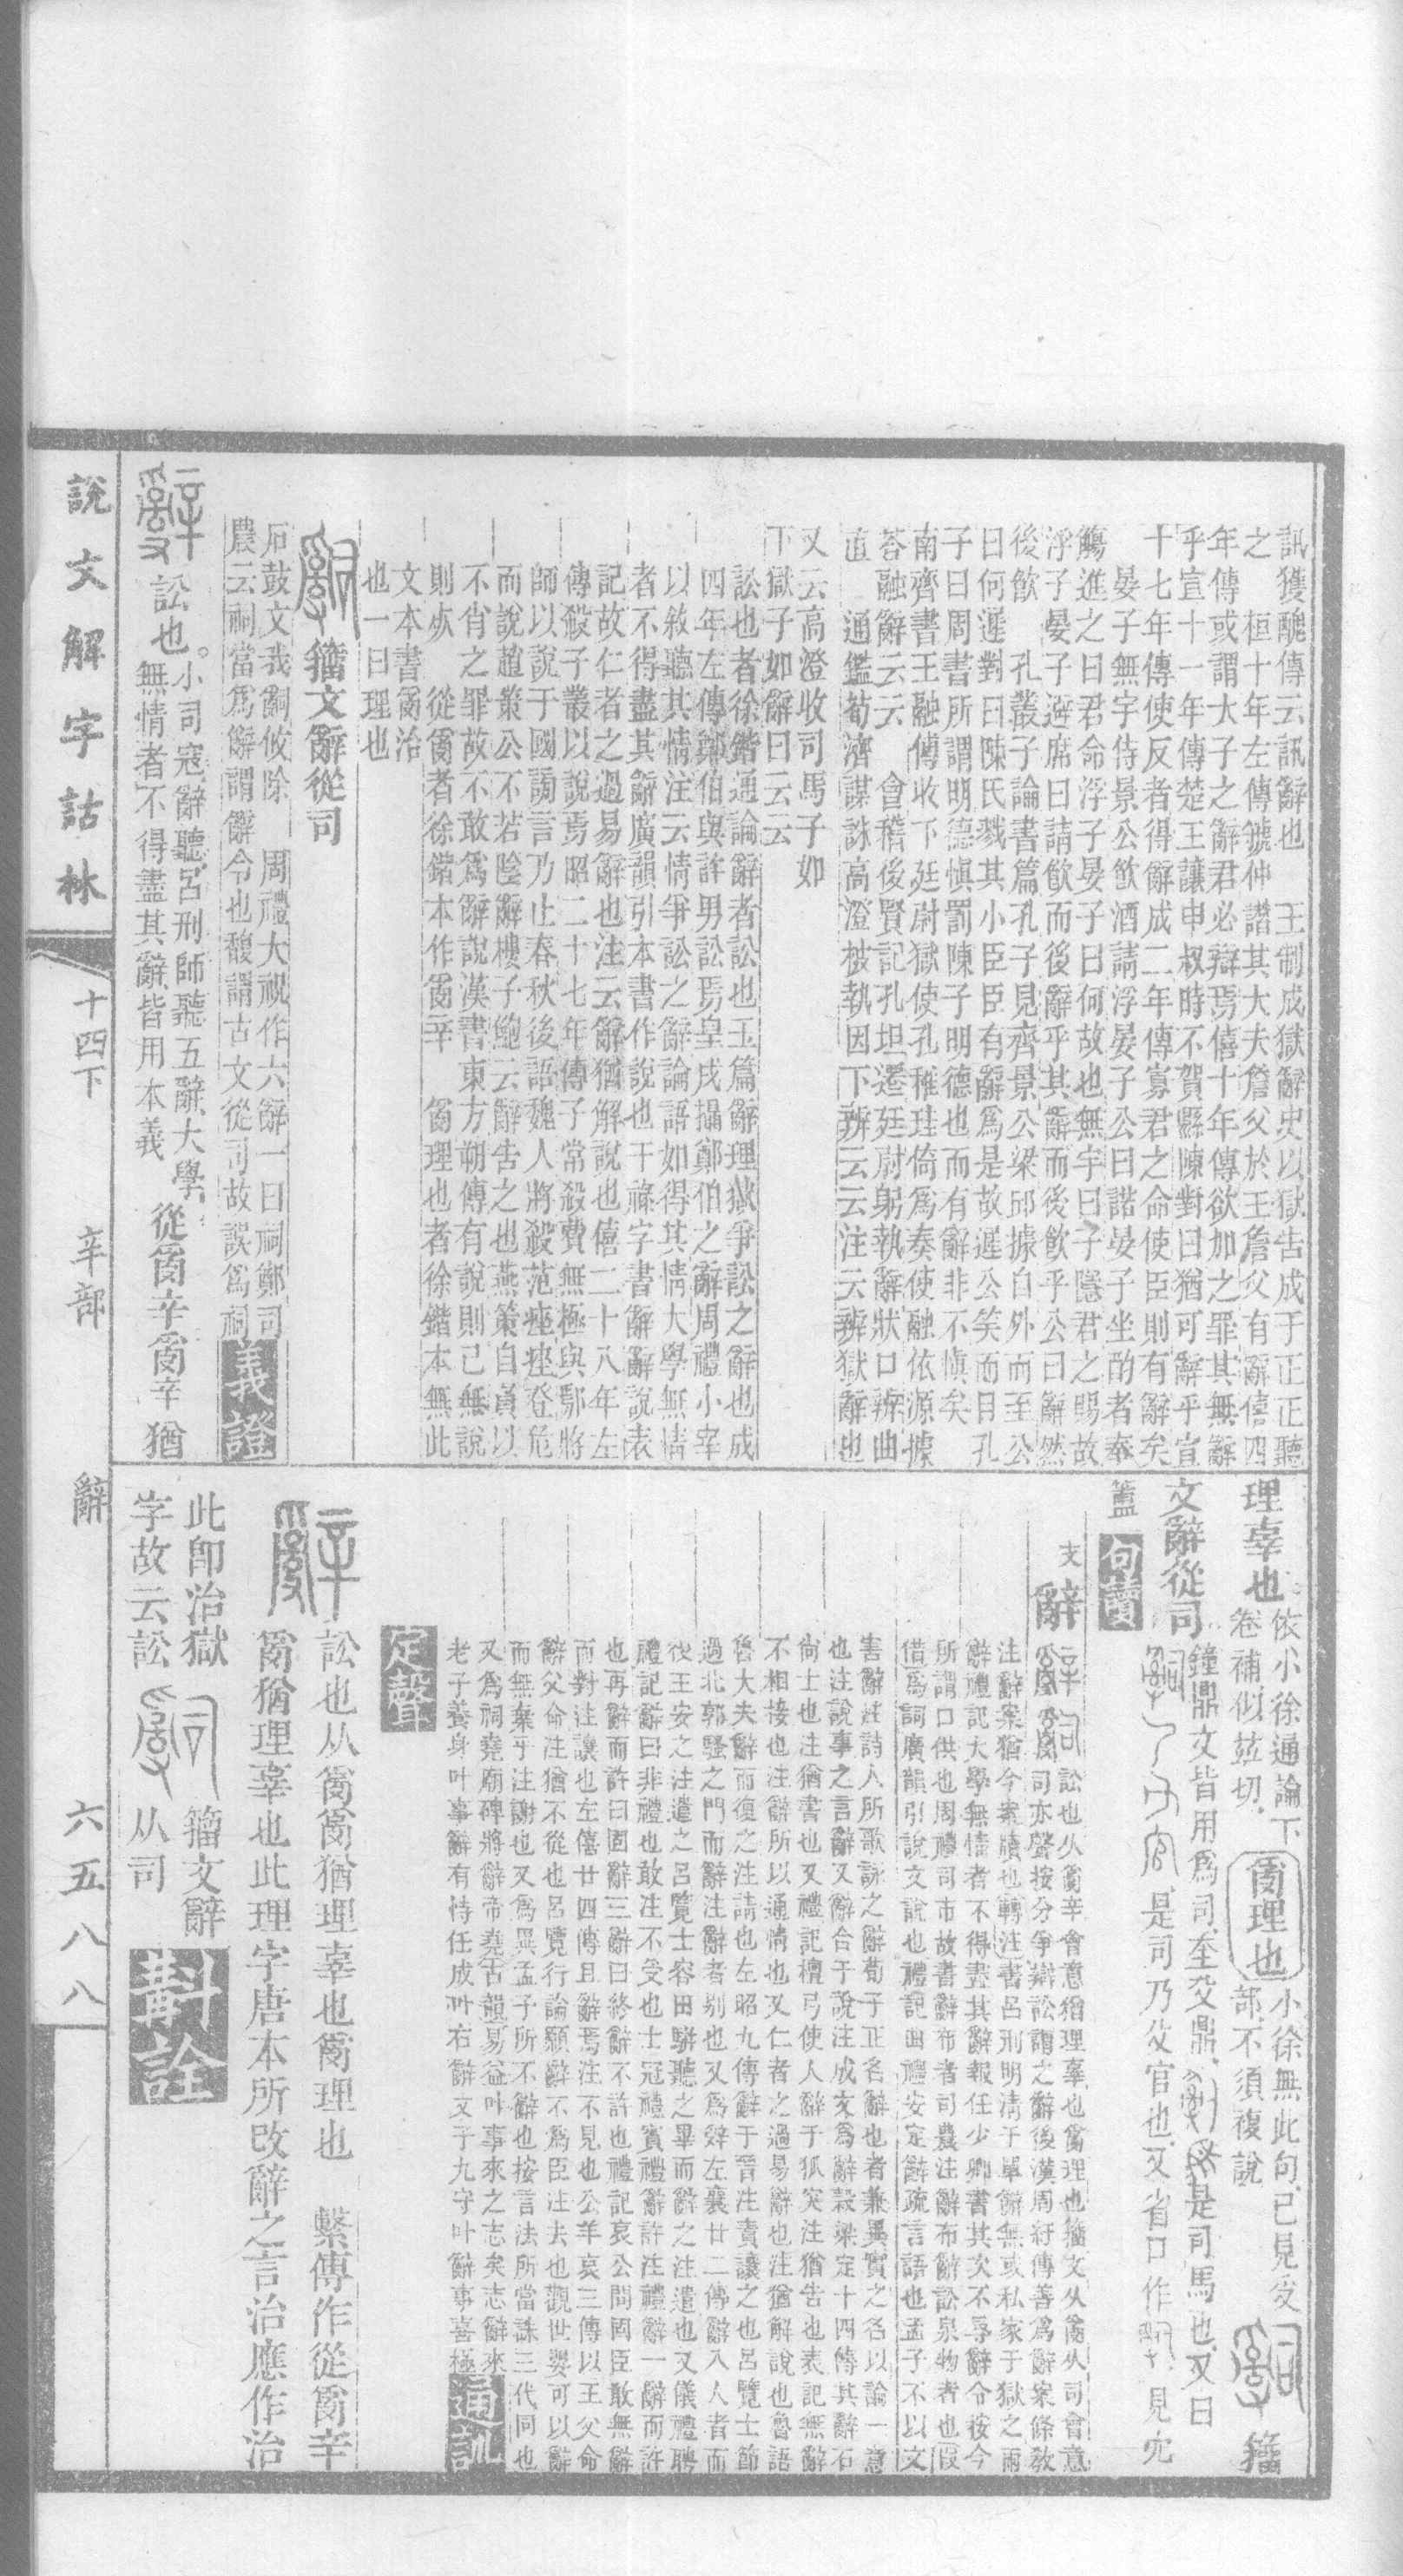 訊獲醜傳云訊辭也　王制成獄辭史以獄吿成于正正聽
之　桓十年左傳虢仲譖其大夫詹父於王詹父有辭僖四
年傳或謂大子之辭君必辯焉僖十年傳欲加之罪其無辭
乎宣十一年傳楚王讓申叔時不賀縣陳對曰猶可辭乎宣
十七年傳使反者得辭成二年傳寡君之命使臣則有辭矣
晏子無宇侍景公飮酒請浮晏子公曰諾晏子坐酌者奉
觴進之曰君命浮子晏子曰何故也無宇曰子隱君之賜故
浮子晏子避席曰請飮而後辭乎其辭而後飮乎公曰辭然
後飮　孔叢子論書篇孔子見齊景公梁邱據自外而至公
曰何遲對曰陳氏戮其小臣臣有辭爲是故遲公笑而目孔
子曰周書所謂明德愼罰陳子明德也而有辭非不愼矣
南齊書王融傳收下廷尉獄使孔稚珪倚爲奏使融依源據
荅融辭云云　會稽後賢記孔坦遷廷尉躬執辭狀口辨曲
直　通鑑荀濟謀誅高澄被執因下辨云云注云辨獄辭也
又云高澄收司馬子如
下獄子如辭曰云云
訟也者徐鍇通論辭者訟也玉篇辭理獄爭訟之辭也成
四年左傳鄭伯與許男訟焉皇戌攝鄭伯之辭周禮小宰
以敘聽其情注云情爭訟之辭論語如得其情大學無情
者不得盡其辭廣韻引本書作說也干祿字書辭辤說表
記故仁者之過易辭也注云辭猶解說也僖二十八年左
傳殺子叢以說焉昭二十七年傳子常殺費無極與鄢將
師以說于國謗言乃止春秋後語魏人將殺范痤痤登危
而說趙豹公不若陰辭樓子鮑云辭吿之也燕策自負以
不肖之罪故不敢爲辭說漢書東方朔傳有說則已無說
則死　從𤔔者徐鍇本作𤔔辛　𤔔理也者徐鍇本無此
文本書𤔔治
也一曰理也
籀文辭從司
石鼓文我嗣攸除　周禮大祝作六辭一曰祠鄭司
農云祠當爲辭謂辭令也馥謂古文從司故誤爲祠　義證
訟也。小司寇辭聽呂刑師聽五辭大學
無情者不得盡其辭皆用本義　從𤔔辛𤔔辛猶
理辜也　依小徐通論下
卷補似茲切　𤔔理也　小徐無此句已見𠬪
部不須複說　籀
文辭從司　鐘鼎文皆用爲司是司馬也又曰
是司乃父官也又省口作見尣
簠　句讀
文　辭　訟也从𤔔辛會意猶理辜也𤔔理也籀文从𤔔从司會意
司亦聲按分爭辯訟謂之辭後漢周紆傳善爲辭案條教
注辭案猶今案牘也轉注書呂刑明淸于單辭無或私家于獄之兩
辭禮記大學無情者不得盡其辭報任少卿書其次不辱辭令按今
所謂口供也周禮司市故書辭布者司農注辭布辭訟泉物者也假
借爲詞廣韻引說文說也禮記曲禮安定辭疏言語也孟子不以文
害辭注詩人所歌詠之辭荀子正名辭也者兼異實之名以論一意
也注說事之言辭又辭合于說注成文爲辭穀梁定十四傳其辭石
尙士也注猶書也又禮記檀弓使人辭于狐突注猶吿也表記無辭
不相接也注辭所以通情也又仁者之過易辭也注猶解說也魯語
魯大夫辭而復之注請也左昭九傳辭于晉注責讓之也呂覽士節
過北郭騷之門而辭注辭者別也又爲辤左襄廿二傳辭八人者而
後王安之注遣之呂覽士容田駢聽之畢而辭之注遣也又儀禮聘
禮記辭曰非禮也敢注不受也士冠禮賓禮辭許注禮辭一辭而許
也再辭而許曰固辭三辭曰終辭不許也禮記哀公問固臣敢無辭
而對注讓也左僖廿四傳且辭焉注不見也公羊哀三傳以王父命
辭父命注猶不從也呂覽行論願辭不爲臣注去也觀世嬰可以辭
而無棄乎注謝也又爲異孟子所不辭也按言法所當誅三代同也
又爲祠堯廟碑將辭帝堯古韻易益叶事來之志矣志辭來
老子養身叶事辭有恃任成叶右辭文子九守叶辭事喜極　通訓
定聲
訟也从𤔔𤔔猶理辜也𤔔理也　繫傳作從𤔔辛
𤔔猶理辜也此理字唐本所改辭之言治應作治
此卽治獄
字故云訟　籀文辭
从司　斠詮
說文解字詁林　十四下　辛部　辭　六五八八